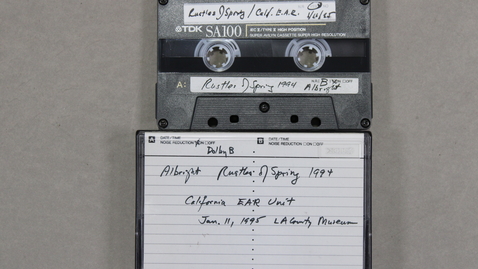 Rustles of Spring / Calif. E.A.R. 1/11/95
TDK SA100 IEC II/TYPE II HIGH POSITION
SUPER AVILYN CASSETTE SUPER HIGH RESOLUTION
A: Rustles of Spring 1994 Albright
A DATE/TIME B DATE/TIME
NOISE REDUCTION ON OFF NOISE REDUCTION ON OFF
Dolby B
Albright Rustles of Spring 1994
California EAR Unit
Jan. 11, 1995 LA County Museum